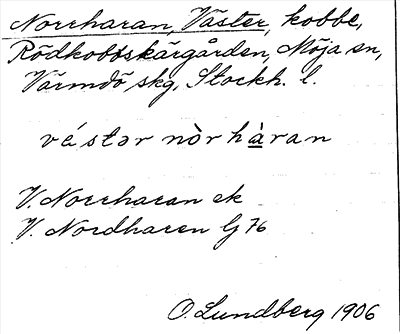 Norrharan, Väster, kobbe,
Rödkobbskärgården, Möja sn,
Värmdö skg, Stockh. l.
vástər nòr hàran
V. Norrharan ek
V. Nordharen G 76
O. Lundberg 1906